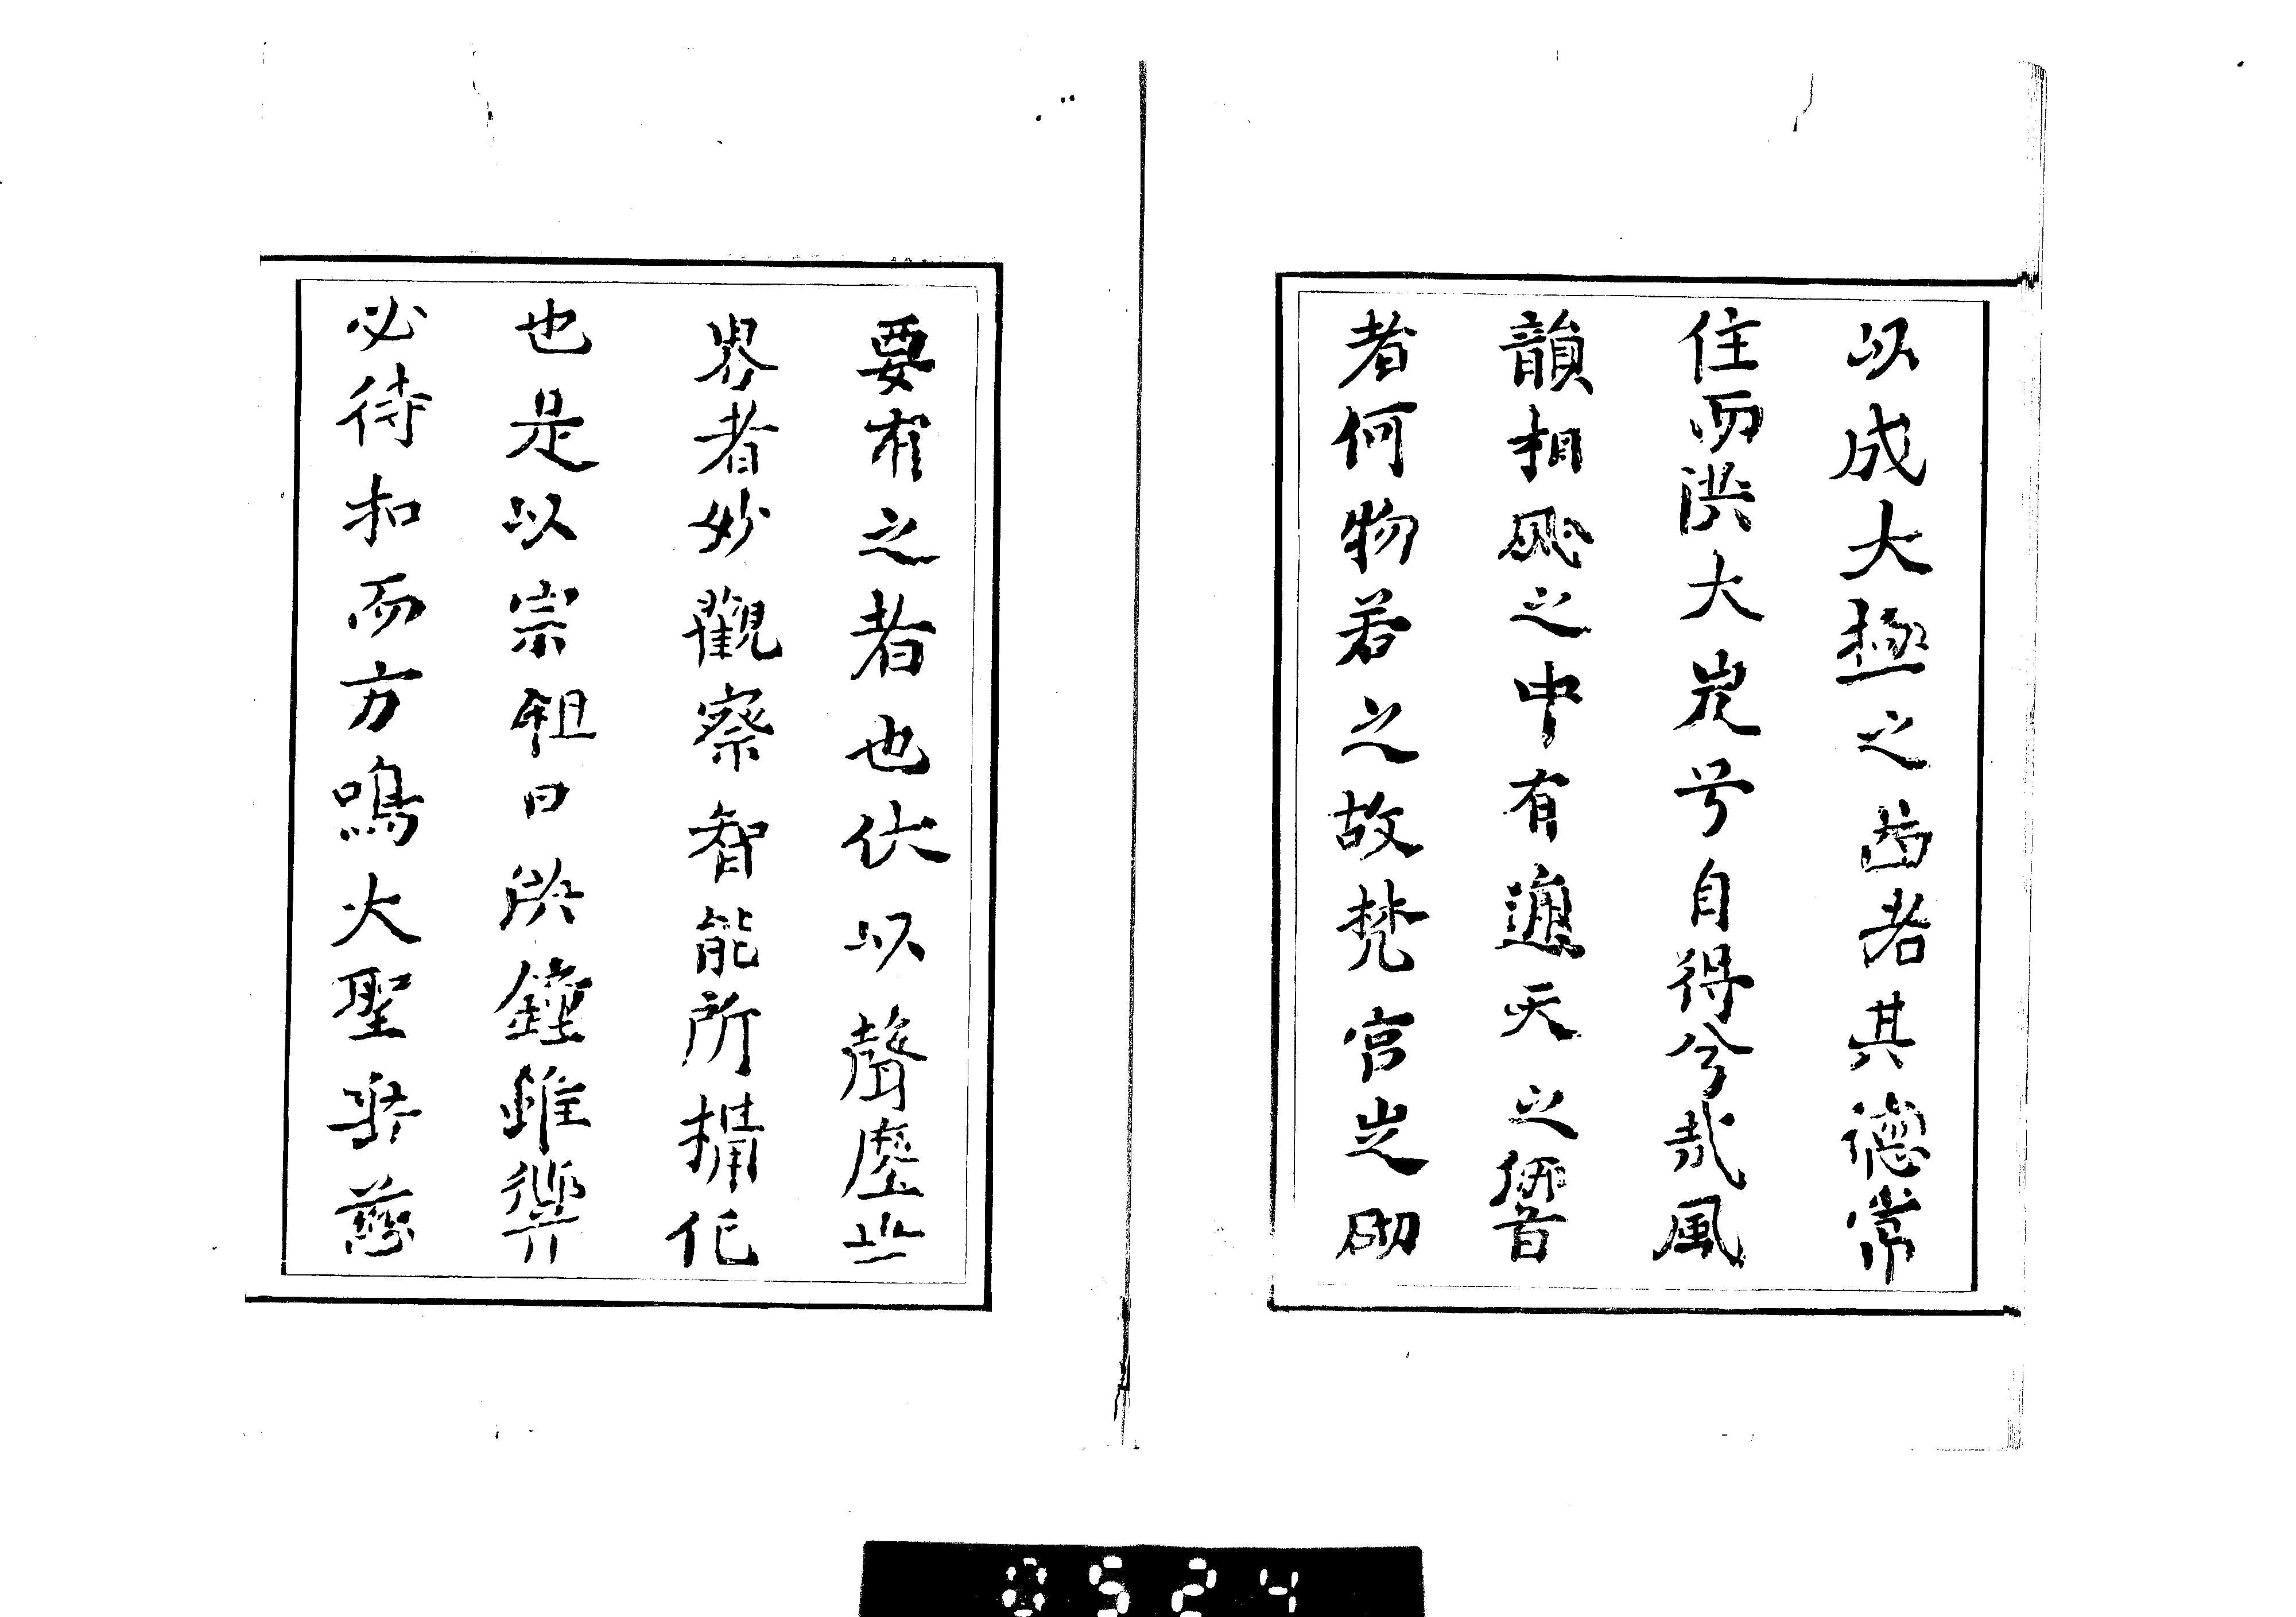 以成大極之
者其德常
住而洪大
自得兮哉風
韻相
之中有通天之響
者何物若之故梵宮之砌
要有之者也伏以聲塵世
界者妙觀察智能所
化
也是以宗祖曰洪鐘雖響
必待扣而方鳴大聖
慈
0524